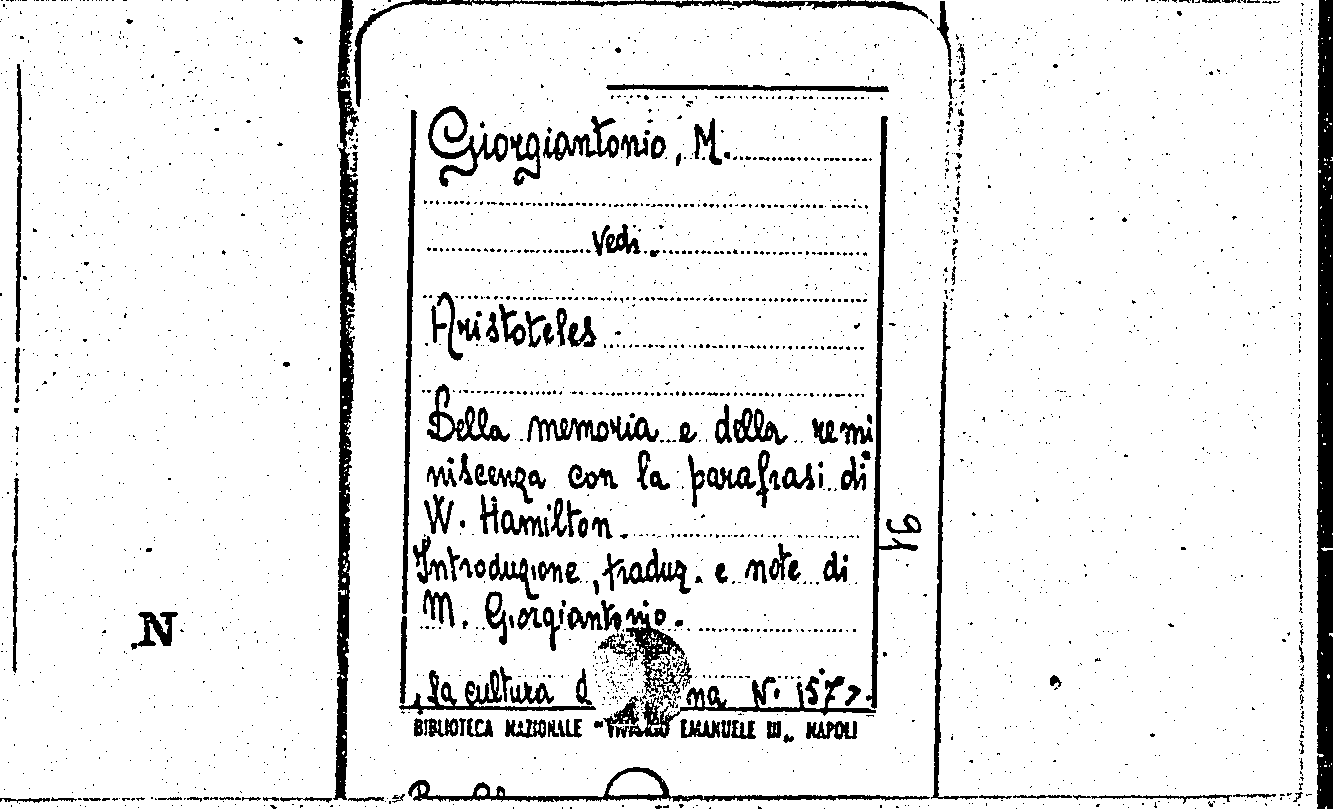 Giorgiantonio, M.
Vedi.
Aristoteles
Della memoria e della remi
niscenza con la parafrasi di
W. Hamilton.
Introduzione, traduz. e note di
M. Giorgiantonio.
La cultura d na N. 157
BIBLIOTECA NAZIONALE "VITTORIO EMANUELE III„ NAPOLI
91
N